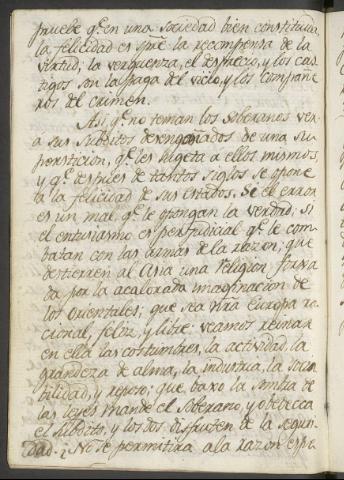 pruebe q.e en una sociedad bien constituida
la felicidad es spre. la recompensa de la
virtud; la verguenza, el desprecio, y los cas-
tigos son la paga del vicio, y los compañe
ros del crimen.
Asi q.e no teman los soberanos ver
a sus subditos desengañados de una su
persticion, q.e les sugeta a ellos mismos,
y q.e despues de tantos siglos se opone
a la felicidad de sus estados. Si el error
es un mal, q.e le opongan la verdad, si
el entusiasmo es perjudicial q.e le com-
batan con las armas de la razon; que
destierren al Asia una religion forxa
da por la acalorada imaginacion de
los orientales; que sea nra europa ra
cional, feliz, y libre: veamos reinar
en ella las costumbres, la actividad, la
grandeza de alma, la industria, la socia
bilidad, y reposo; que baxo la sombra de
las leyes mande el soberano, y obedezca
el subdito, y los dos disfruten de la seguri-
dad. ¿No se permitira a la razon espe